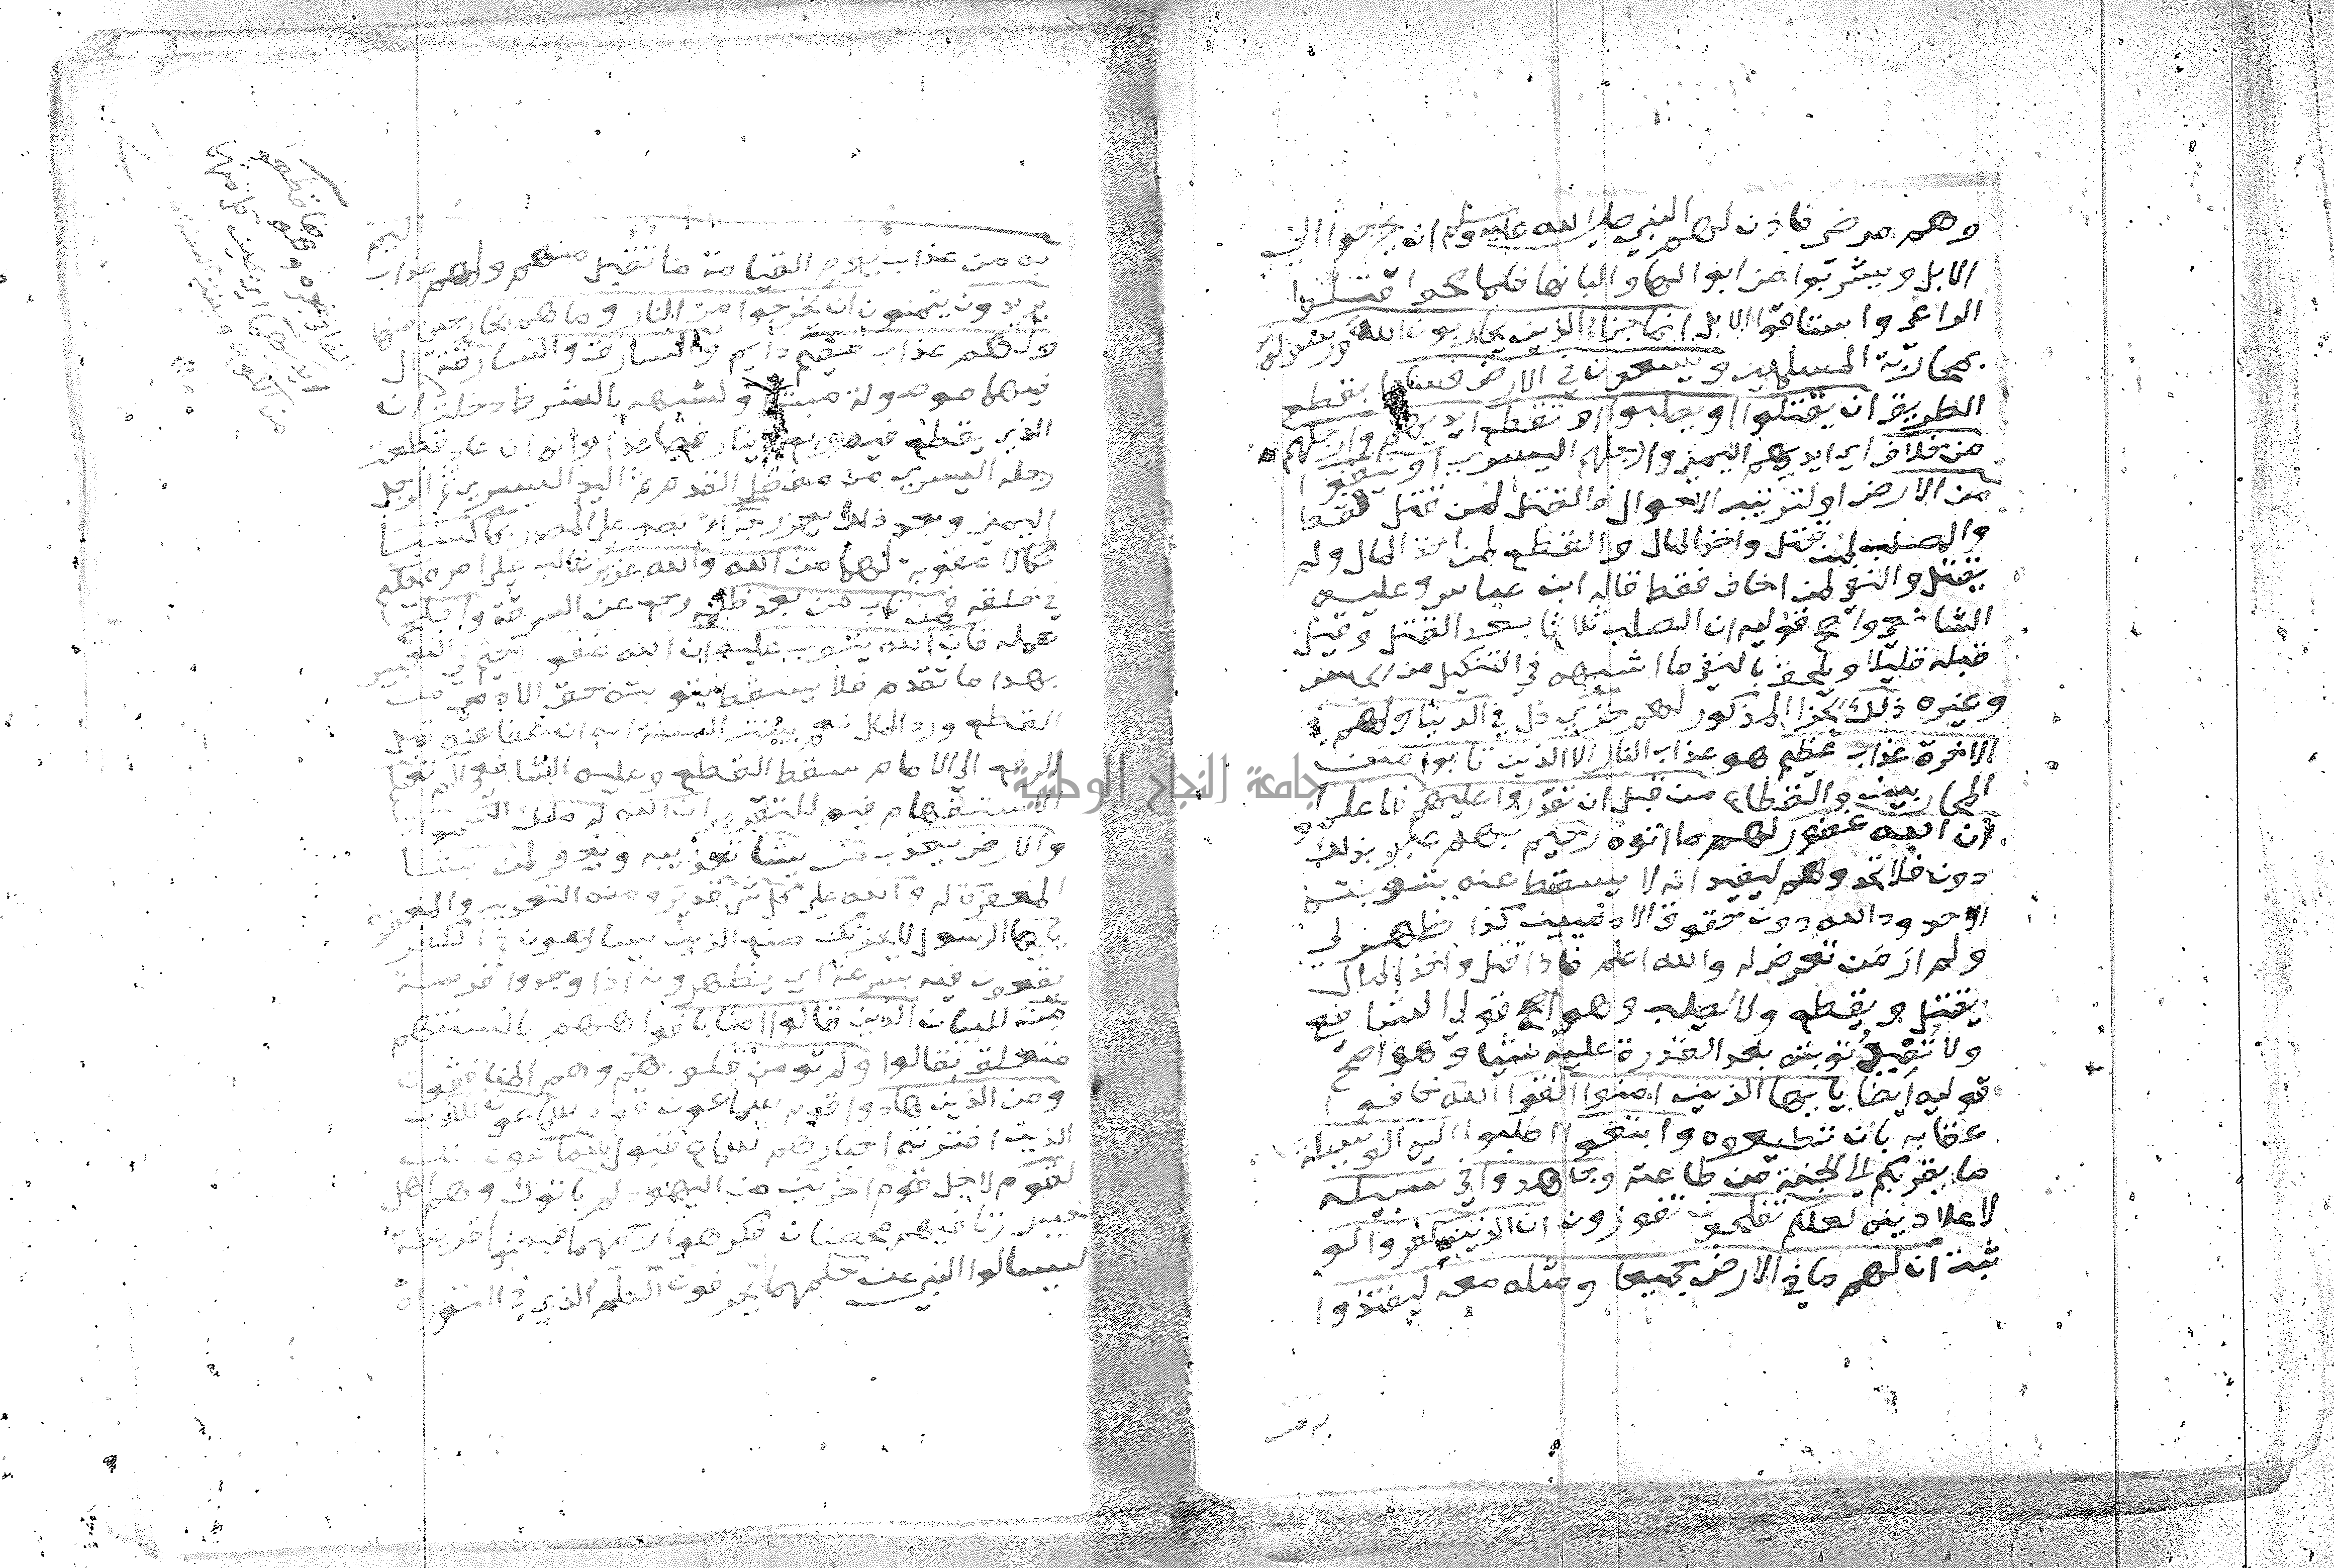 وهم مرضى فاذن لهم النبي صلى الله عليه وسلم ان يخرجوا الى
الابل ويشربوا من ابوالها والبانها فلما صحوا قتلوا
الراعي واستاقوا الابل انما جزاء الذين يحاربون الله ورسوله
بمحاربة المسلمين ويسعون في الارض فسادا بقطع
الطريق ان يقتلوا او يصلبوا او تقطع ايديهم وارجلهم
من خلاف اي ايديهم اليمنى وارجلهم اليسرى او ينفوا
من الارض او لترتيب الاحوال فالقتل لمن قتل فقط
والصلب لمن قتل واخذ المال والقطع لمن اخذ المال ولم
يقتل والنفي لمن اخاف فقط قاله ابن عباس وعليه
الشافعي واصح قوليه ان الصلب ثلاثا بعد القتل وقيل
قبله قليلا ويلحق بالنفي ما اشبهه في التنكيل من الحبس
وغيره ذلك الجزا المذكور لهم خزي ذل في الدنيا ولهم في
الاخرة عذاب عظيم هو عذاب النار الا الذين تابوا من
المحاربين والقطاع من قبل ان تقدروا عليهم فاعلموا
ان الله غفور لهم ما اتوه رحيم بهم عبر بذلك
دون فلا تحدوهم ليفيد انه لا يسقط عنه بتوبته
الا حدود الله دون حقوق الادميين كذا ظهر لي
ولم ار من تعرض له والله اعلم فاذا قتل واخذ المال
يقتل ويقطع ولا يصلب وهو اصح قولي الشافعي
ولا تفيد توبته بعد القدرة عليه شيئا وهو اصح
قوليه ايضا يايها الذين امنوا اتقوا الله خافوا
عقابه بان تطيعوه وابتغوا اطلبوا اليه الوسيلة
ما يقربكم الى الجنة من طاعته وجاهدوا في سبيله
لاعلا دينه لعلكم تفلحون تفوزون ان الذين كفروا لو
ثبت ان لهم ما في الارض جميعا ومثله معه ليفتدوا
به من
اليم
به من عذاب يوم القيامة ما تقبل منهم ولهم عذاب
يريدون يتمنون ان يخرجوا من النار وما هم بخارجين منها
ولهم عذاب مقيم دايم والسارق والسارقة ال
فيهما موصولة مبتدا ولشبهه بالشرط دخلت
الذي يقطع فيه ربع دينار فصاعدا وانه ان عاد قطعت
رجله اليسرى من مفصل القدم ثم اليد اليسرى ثم الرجل
اليمنى وبعد ذلك يعزر جزاء نصب على المصدر بما كسبا
نكالا عقوبة لهما من الله والله عزيز غالب على امره حكيم
في خلقه فمن تاب من بعد ظلمه رجع عن السرقة واصلح
عمله فان الله يتوب عليه ان الله غفور رحيم في التعبير
بهذا ما تقدم فلا يسقط بتوبته حق الادمي من
القطع ورد المال نعم بينت السنة انه ان عفا عنه قبل
الرفع الى الامام سقط القطع وعليه الشافعي الم تعلم
الاستفهام فيه للتقرير ان الله له ملك السموات
والارض يعذب من يشا تعذيبه ويغفر لمن يشا
المغفرة له والله على كل شي قدير ومنه التعذيب والمغفرة
يايها الرسول لا يحزنك صنع الذين يسارعون في الكفر
يقعون فيه بسرعة اي يظهرونه اذا وجدوا فرصة
من للبيان الذين قالوا امنا بافواههم بالسنتهم
متعلق بقالوا ولم تومن قلوبهم وهم المنافقون
ومن الذين هادوا قوم سماعون للكذب
الذي افترته احبارهم سماع قبول سماعون منك
لقوم لاجل قوم اخرين من اليهود لم ياتوك وهم اهل
خيبر زنا فيهم محصنان فكرهوا رجمهما فبعثوا قريظة
ليسالوا النبي عن حكمهما يحرفون الكلم الذي في التوراة
جامعة النجاح الوطنية